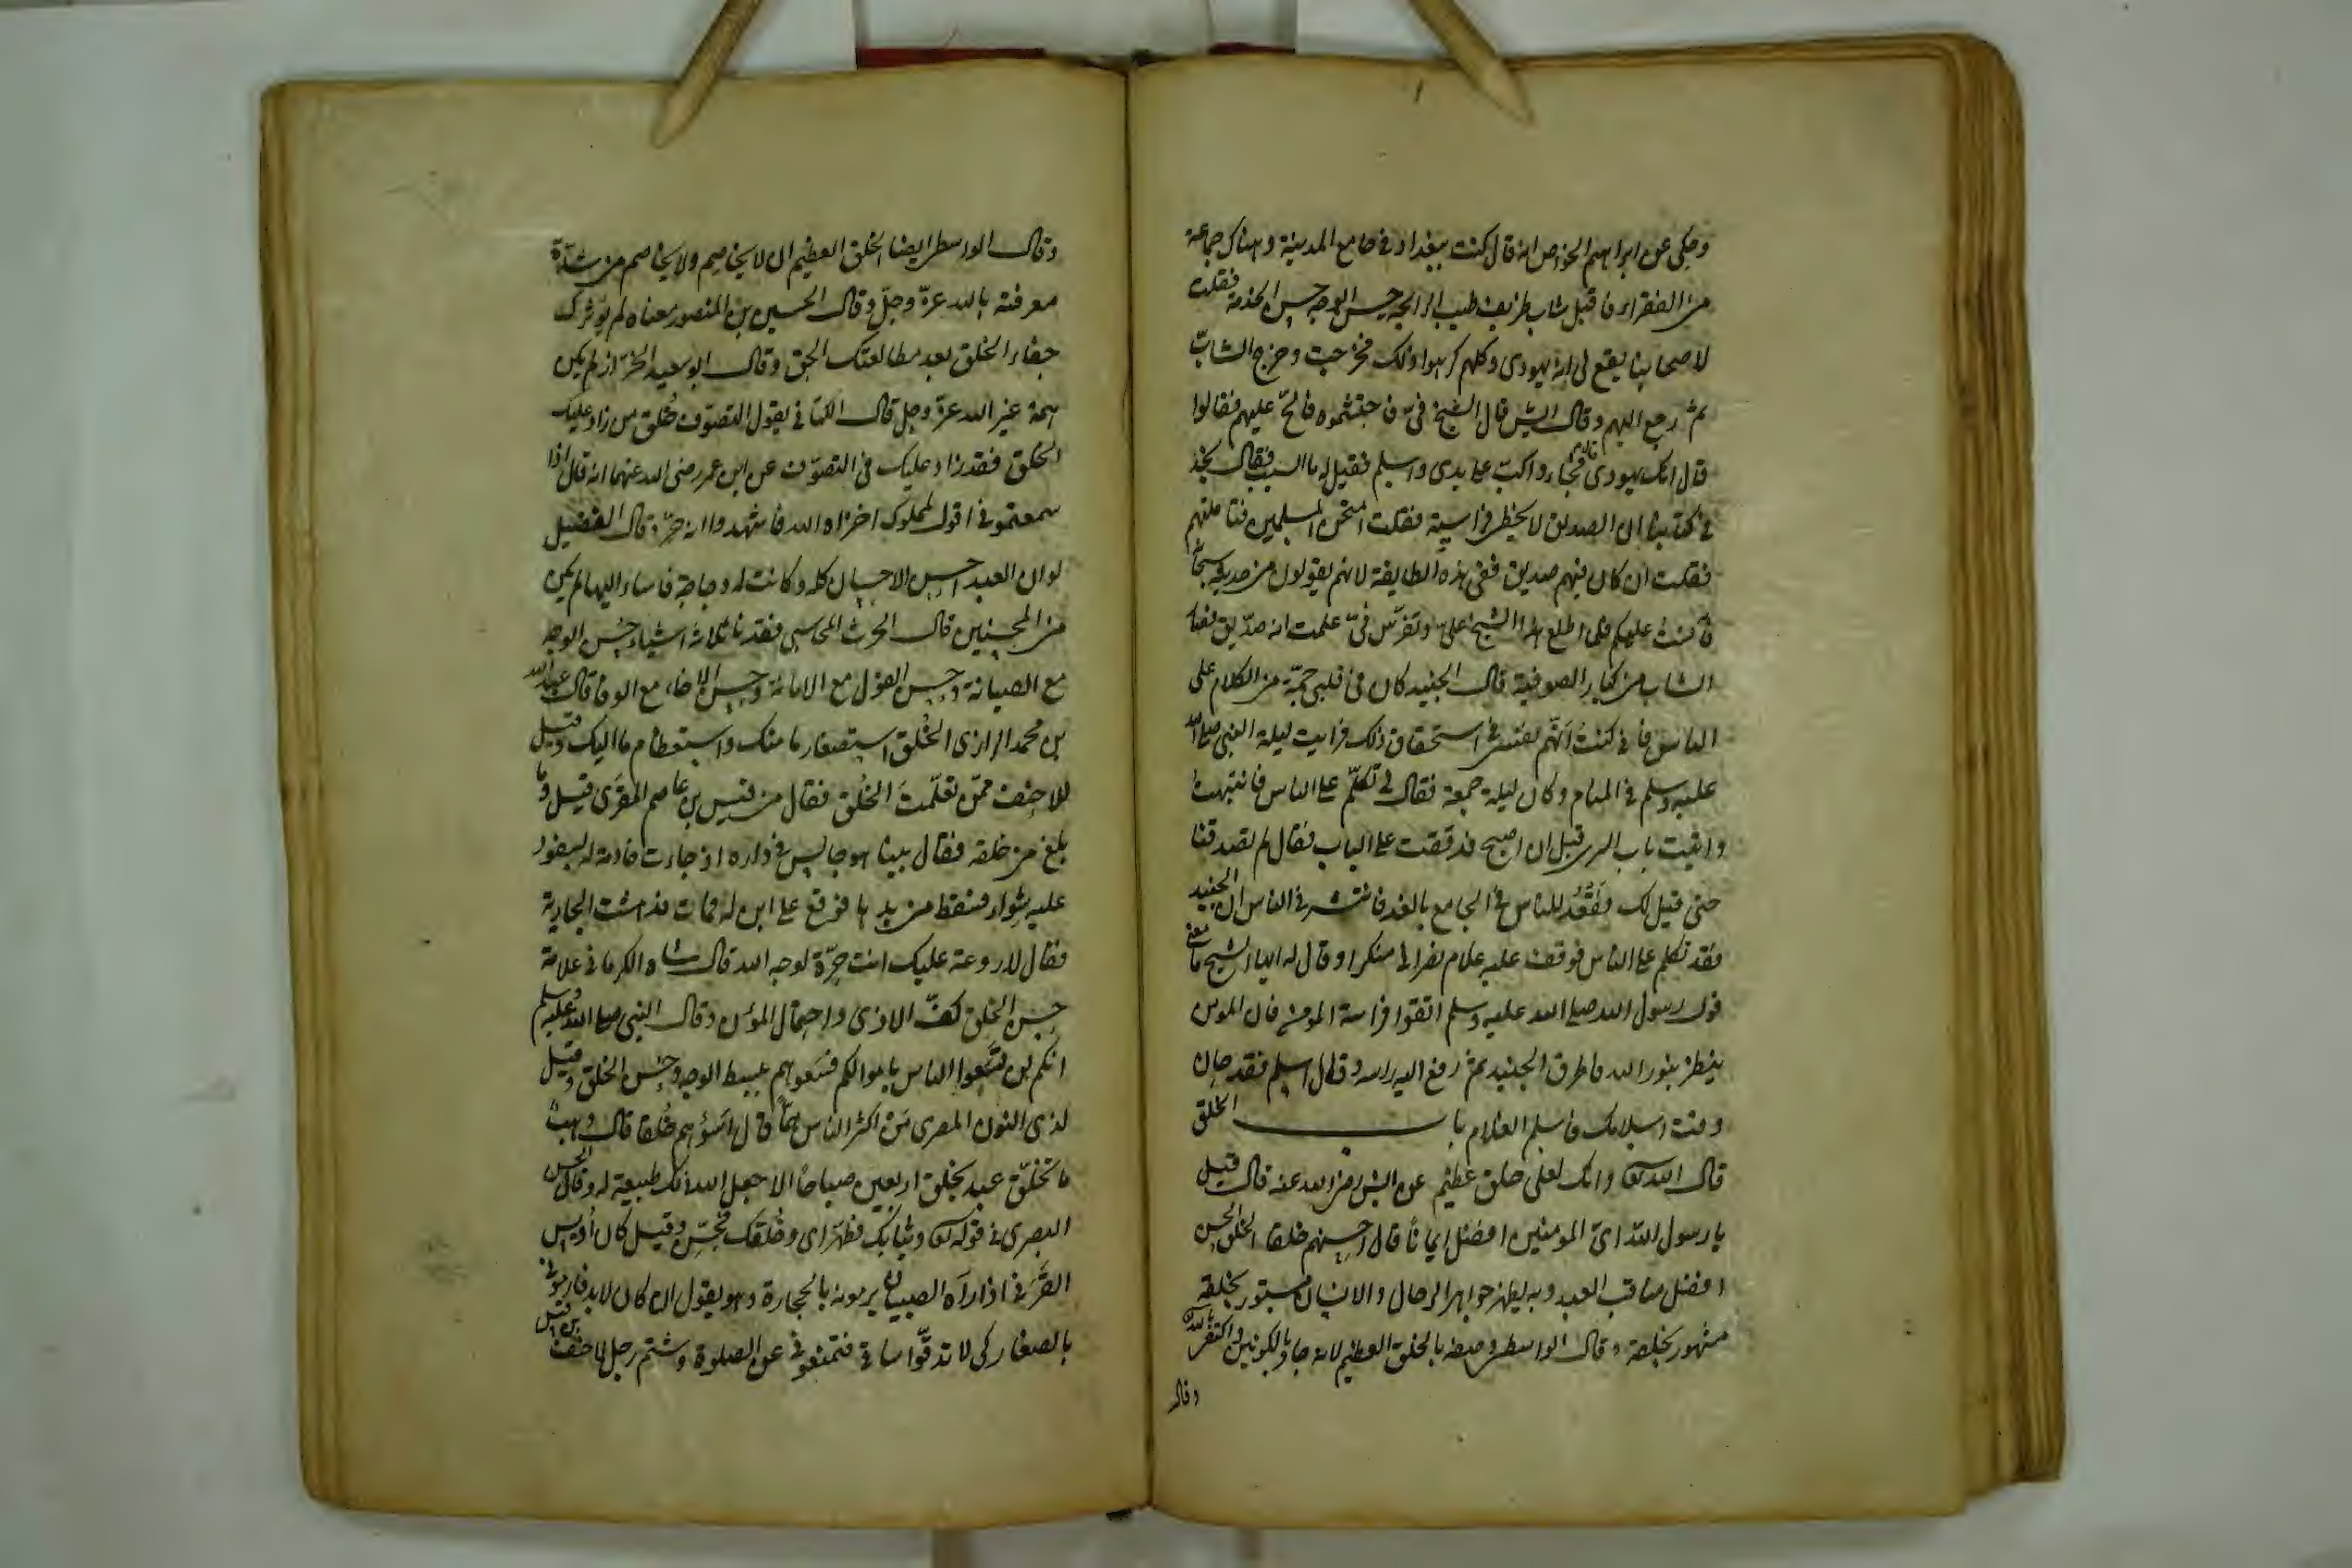 وحكى عن ابراهيم الخواص انه قال كنت ببغداد في جامع المدينة وهناك جماعة
من الفقراء فاقبل شاب ظريف طيب الرايحة حسن الوجه حسن الخدمة فقلت
لاصحابنا يقع لي انه يهودى وكلهم كرهوا ذلك فخرجت وخرج الشابّ
ثم رجع اليهم وقال ايش قال الشيخ فىّ فاحتشموه فالحّ عليهم فقالوا
قال انك يهودى قال فجاء واكبّ على يدى واسلم فقيل له ما السبب فقال نجد
في كتابنا ان الصديق لا يخطر فراسته فقلت امتحن المسلمين فتاملتهم
فقلت ان كان فيهم صديق ففي هذه الطايفة لانهم يقولون
عليكم فلما اطلع هذا الشيخ علىّ وتفرّس فىّ علمت انه صدّيق
الشاب من كبار الصوفية قال الجنيد كان في قلبي من الكلام على
الناس فانى كنت اتّهم نفسى في استحقاق ذلك فرايت ليلة النبي صلى الله
عليه وسلم في المنام وكان ليلة جمعة فقال لى تكلّم على الناس فانتبهت
واتيت باب السرى قبل ان اصبح فدققت على الباب فقال لم تصدقنا
حتى قيل لك فقَعُدَ للناس في الجامع بالغد فانتشر في الناس ان الجنيد
فقد تكلم على الناس فوقف عليه غلام نصرانى منكرا وقال له ايها الشيخ ما معنى
قول رسول الله صلى الله عليه وسلم اتقوا فراسة المومن فان المومن
ينظر بنور الله فاطرق الجنيد ثم رفع اليه راسه وقال اسلم فقد حان
وقت اسلامك فاسلم الغلام باب الخلق
قال الله تعالى وانك لعلى خلق عظيم عن انس رضى الله عنه قال قيل
يا رسول الله اىّ المومنين افضل ايمانًا قال احسنهم خلقا الخلق الحسن
افضل مناقب العبد وبه يظهر جواهر الرجال والانسان مستور بخلقه
مشهور بخلقه وقال الواسطى وصفه بالخلق العظيم لانه جاد بالكونين واكتفى بالله
وقال
وقال الواسطى ايضا الخلق العظيم ان لا يخاصِم ولا يخاصم من شدّة
معرفته بالله عزّ وجلّ وقال الحسين بن المنصور معناه لم يؤثر فيك
جفاء الخلق بعد مطالعتك الحق وقال ابو سعيد الخرّاز لم يكن
همة غير الله عزّ وجل قال الكتانى يقول التصوّف خُلق من زاد عليك
الخلق فقد زاد عليك في التصوّف عن ابن عمر رضى الله عنهما انه قال اذا
سمعتمونى اقول لمملوك اخزاه الله فاشهدوا انه حرّ وقال الفضيل
لو ان العبد احسن الاحسان كله وكانت له دجاجة فاساء اليها لم يكن
من المحسنين قال الحرث المحاسبي فقدنا ثلاثة اشياء حسن الوجه
مع الصيانة وحسن القول مع الامانة وحسن الاخاء مع الوفا قال عبدالله
بن محمد الرازى الخُلق استصغار ما منك واستعظام ما اليك وقيل
للاحنف ممّن تعلّمتَ الخُلق فقال من قيس بن عاصم المقرى قيل وما
بلغ من خلقه فقال بينا هو جالس في داره اذ جاءت خادمة له بسفود
عليه شواء فسقط من يدها فوقع على ابن له فمات فدهشت الجارية
فقال لا روعة عليك انت حرّة لوجه الله قال شاه الكرمانى علامة
حسن الخلق كفّ الاذى واحتمال المؤن وقال النبي صلى الله عليه وسلم
انكم لن تسَعوا الناس باموالكم فسَعوهم ببسط الوجه وحُسن الخلق وقيل
لذى النون المصرى مَن اكثر الناس همّاً قال اسَؤهم خُلقا قال وهب
ما تخلّق عبد بخلق اربعين صباحًا الا جعل الله ذلك طبيعة له وقال الحسن
البصرى في قوله تعالى وثيابك فطهّر اى وخُلقك فحسّن وقيل كان اُويس
القَرَنى اذا رآه الصبيان يرمونه بالحجارة وهو يقول ان كان لابد فارمونى
بالصغار كى لا تدقّوا ساقى فتمنعونى عن الصلوة وشتم رجل للاحنف بن قيس